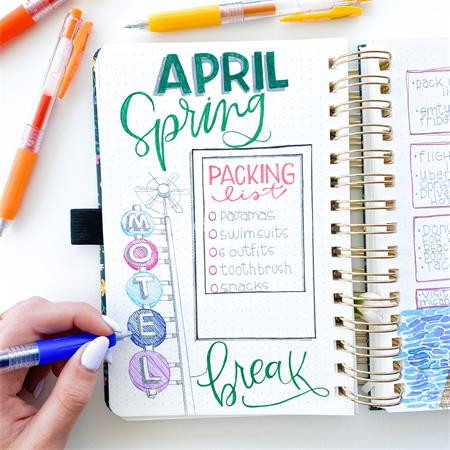 APRIL
Spring
PACKING
list
pajamas
swimsuits
6 outfits
toothbrush
snacks
MOTEL
break
pack
emty
fridge
flight
Uber
Drive
Boat
visit